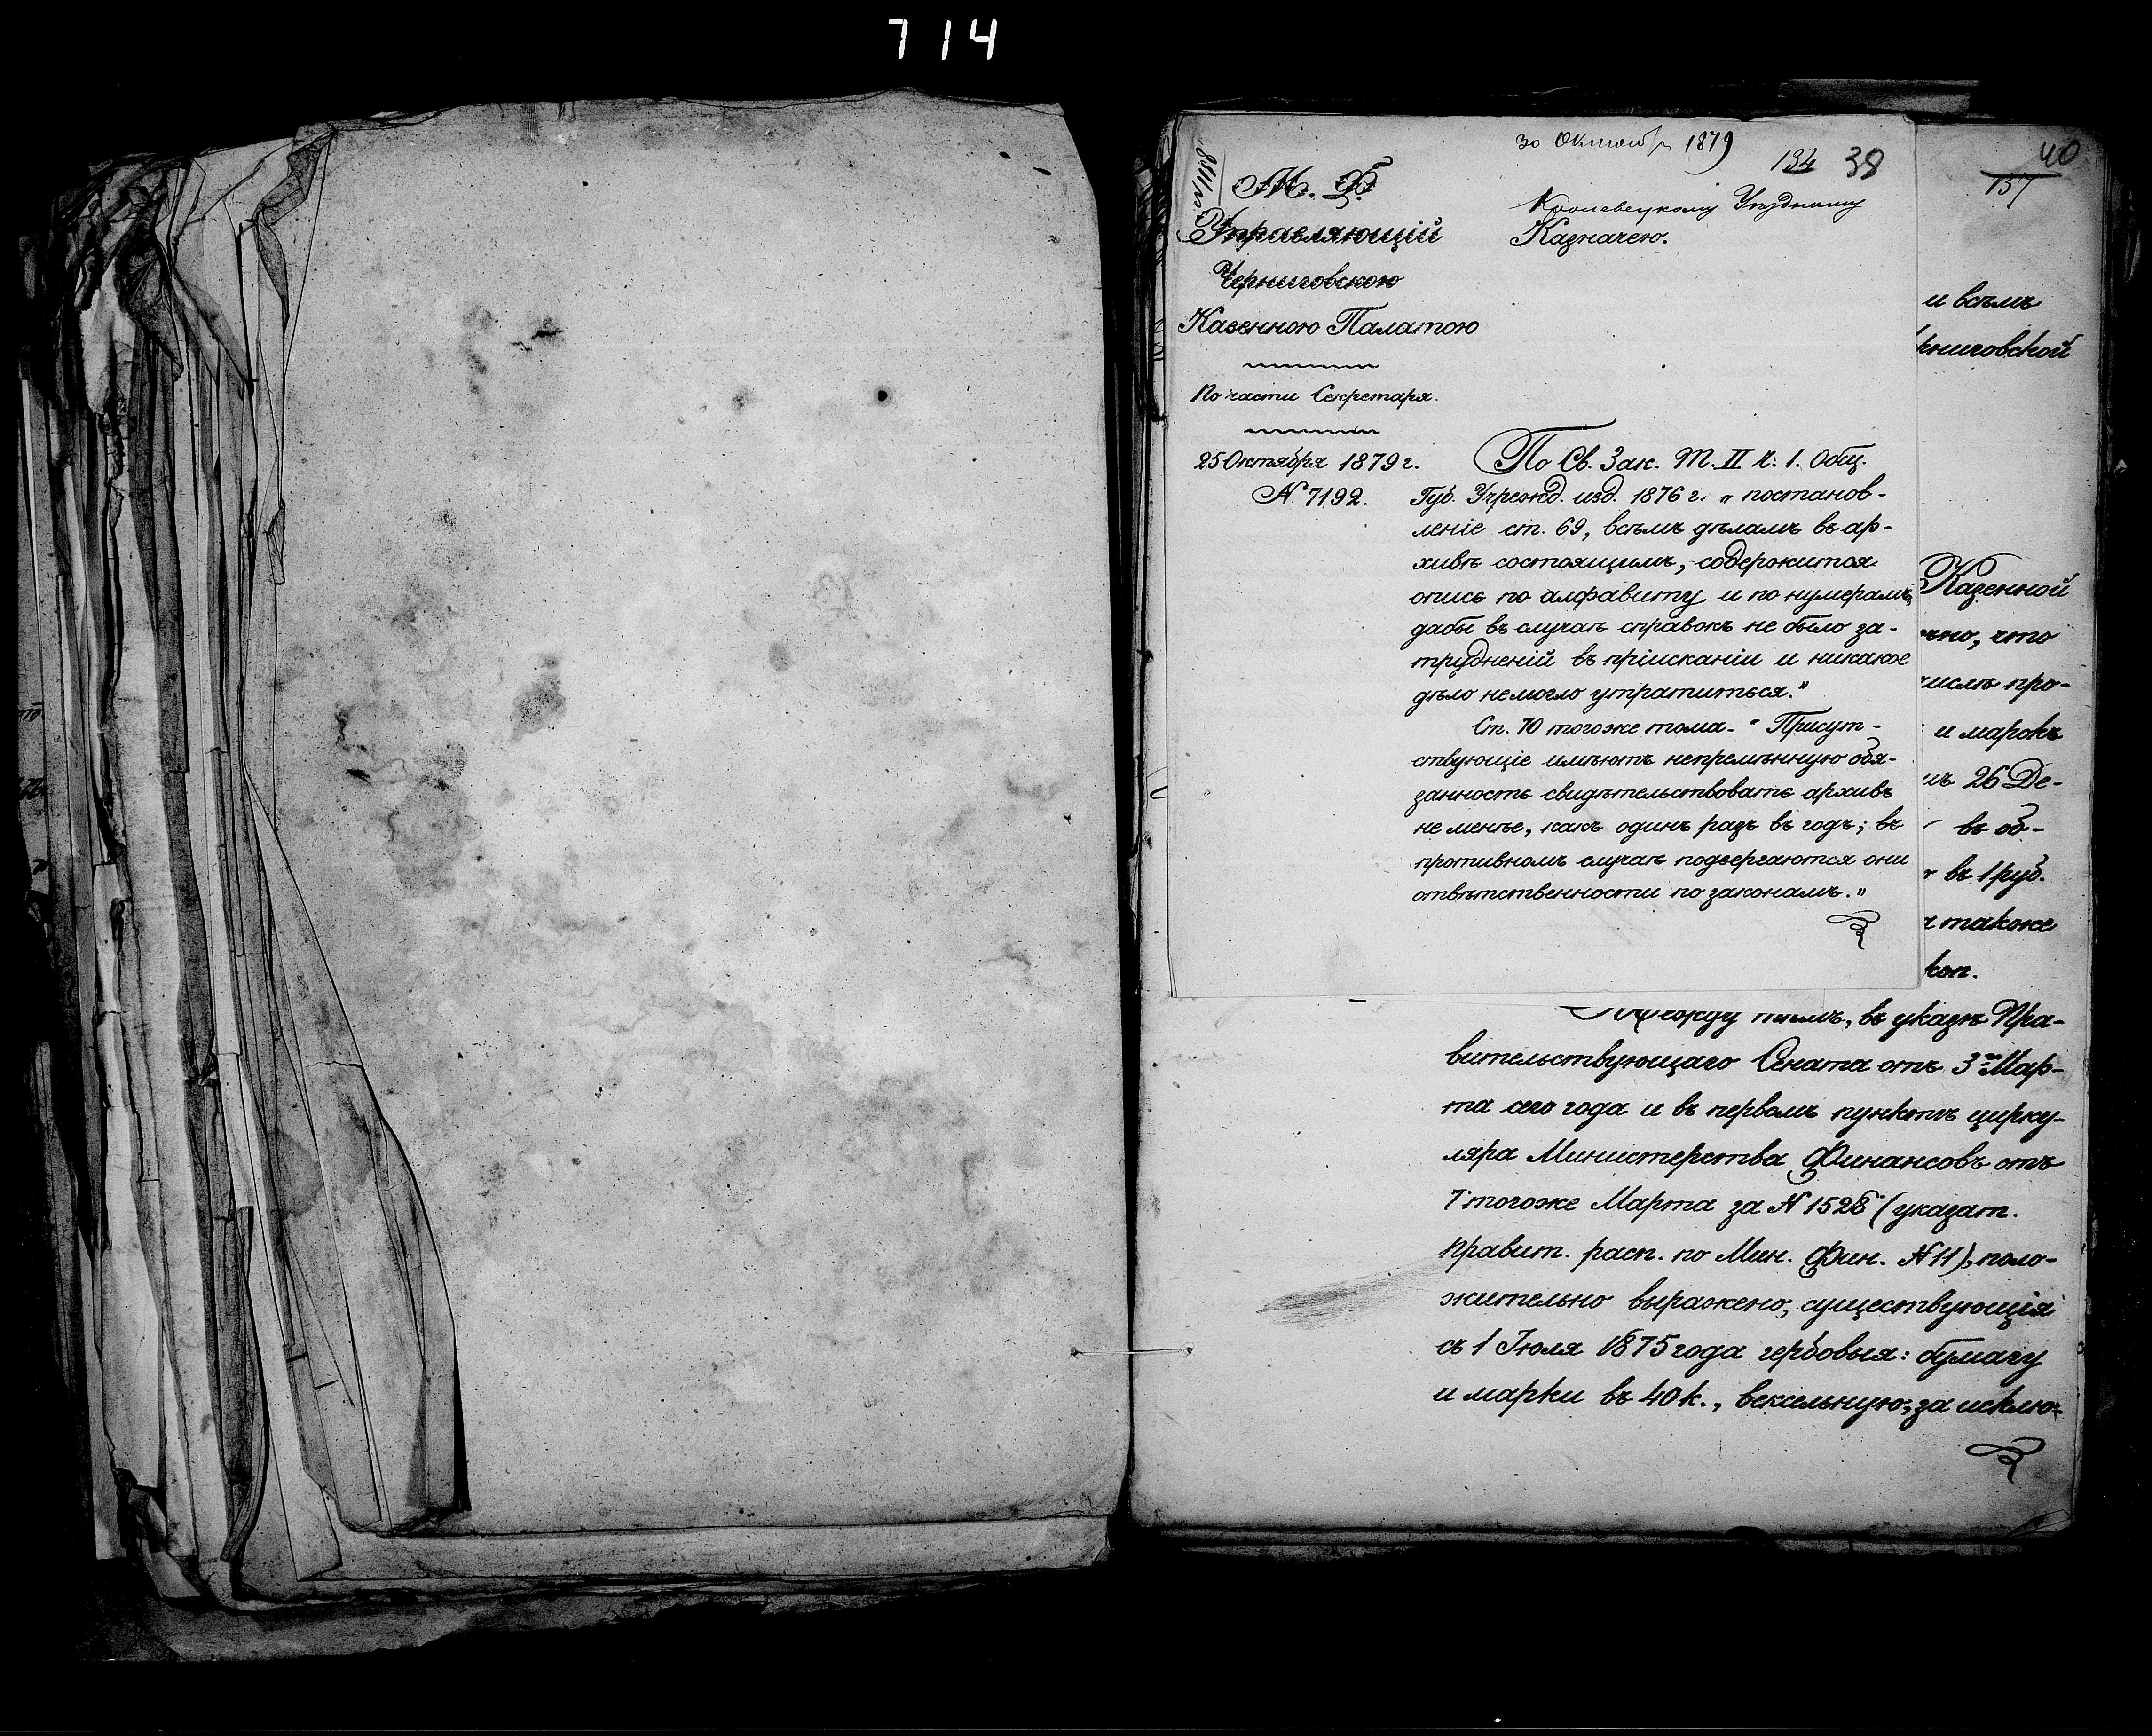 714
30 Октябр 1879
134 38
М. Ф.
Управляющій
Черниговскою
Казенною Палатою
По части Секретаря.
25 Октября 1879 г.
N 7192.
Кролевецкому Уездному
Казначею.
По Св. Зак. Т. II ч: 1. Общ.
Губ. Учрежд. изд. 1876 г. „ постанов-
леніе ст. 69, всѣмъ дѣламъ въ ар-
хивѣ состоящимъ, содержится
опись по алфавиту и по нумерамъ,
дабы въ случаѣ справокъ не было за-
трудненій въ пріисканіи и никакое
дѣло немогло утратиться."
Ст. 70 тогоже тома. „ Присут-
ствующіе имѣютъ непремѣнную обя-
занность свидѣтельствовать архивъ
не менѣе, какъ одинъ разъ въ годъ; въ
противномъ случаѣ подвергаются они
отвѣтственности по законамъ."
40
137
и всѣмъ
рниговской
Казенной
чно, что
числѣ про-
и марокъ
мъ 26 Де-
въ об-
въ 1 руб.
также
коп.
Между тѣмъ, въ указѣ Пра-
вительствующаго Сената отъ 3го Мар-
та сего года и въ первомъ пунктѣ цирку-
ляра Министерства Финансовъ отъ
7 тогоже Марта за N 1528 (указат.
правит. расп. по Мин. Фин. N 11), поло-
жительно выражено, существующія
съ 1 Іюля 1875 года гербовыя: бумагу
и марки въ 40 к., вексельную, за исклю-